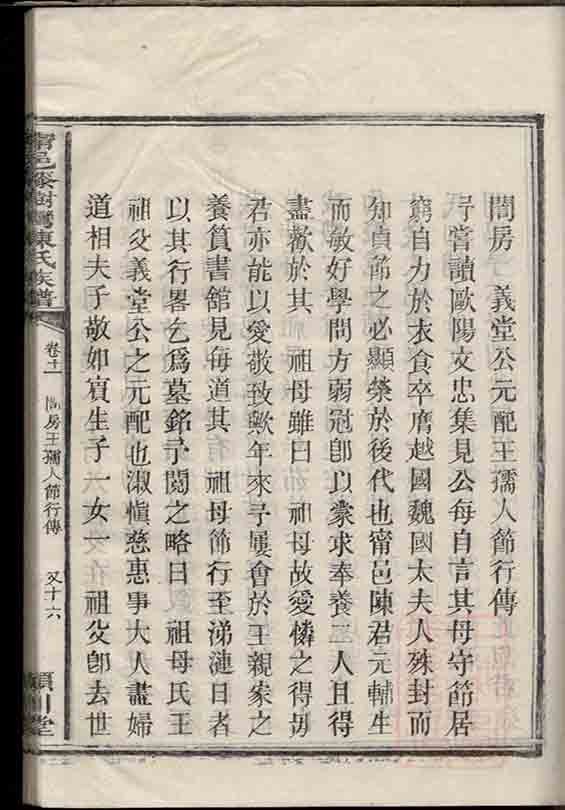 閏房　義堂公元配王孺人節行傳
予嘗讀歐陽文忠集見公每自言其母守節居
窮自力於衣食卒膺越國魏國太夫人殊封而
知貞節之必顯榮於後代也甯邑陳君元輔生
而敏好學問方弱冠卽以蒙求奉養二人且得
盡歡於其　祖母雖曰　祖母故愛憐之得毋
君亦能以愛敬致歟年來予屢會於王親家之
養篔書舘見每道其　祖母節行至涕漣日者
以其行畧乞爲墓銘予閱之略曰　祖母氏王
祖父義堂公之元配也淑愼慈惠事大人盡婦
道相夫子敬如賓生子一女一祖父卽去世
甯邑 樹灣陳氏族譜
卷十一
閏房王孺人節行傳
又十六
潁川堂